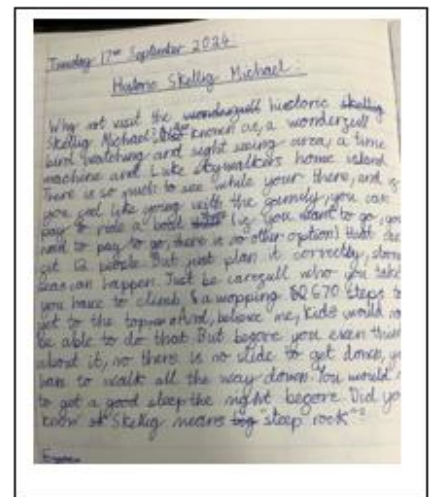 Tuesday 17th September 2024
Historic Skellig Michael:
Why not visit the historic skellig
Skellig Michael! known as, a wondergull
bird watching and sight seing area, a time
machine and Luke Skywalkers home island
There is so much to see while your there, and if
you feel like going with the you can
pay to ride a boat (if you want to go, you
need to pay to go, there is no other option) that
fit 12 people. But just plan it correctly,
can happen. Just be caregull who you take
you have to climb a wopping 670 steps to
get to the top. And, believe me, Kids would
be able to do that But before you even think
about it, no there is no slide to get down, you
have to walk all the way down. You would
to get a good sleep the night before. Did you
know Skellig means "steep rock"